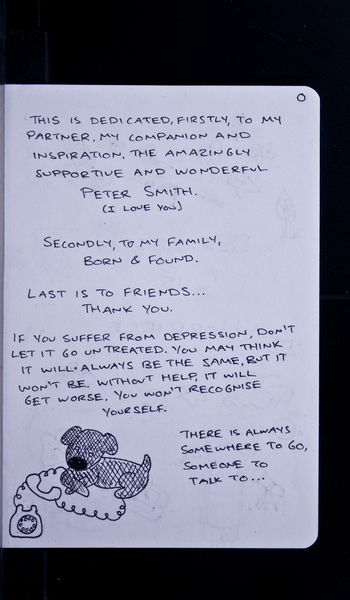 0
THIS IS DEDICATED, FIRSTLY, TO MY
PARTNER, MY COMPANION AND
INSPIRATION, THE AMAZINGLY
SUPPORTIVE AND WONDERFUL
PETER SMITH.
(I LOVE YOU)
SECONDLY, TO MY FAMILY,
BORN & FOUND.
LAST IS TO FRIENDS...
THANK YOU.
IF YOU SUFFER FROM DEPRESSION, DON'T
LET IT GO UNTREATED. YOU MAY THINK
IT WILL ALWAYS BE THE SAME, BUT IT
WON'T BE. WITHOUT HELP, IT WILL
GET WORSE. YOU WON'T RECOGNISE
YOURSELF.
THERE IS ALWAYS
SOMEWHERE TO GO,
SOMEONE TO
TALK TO...